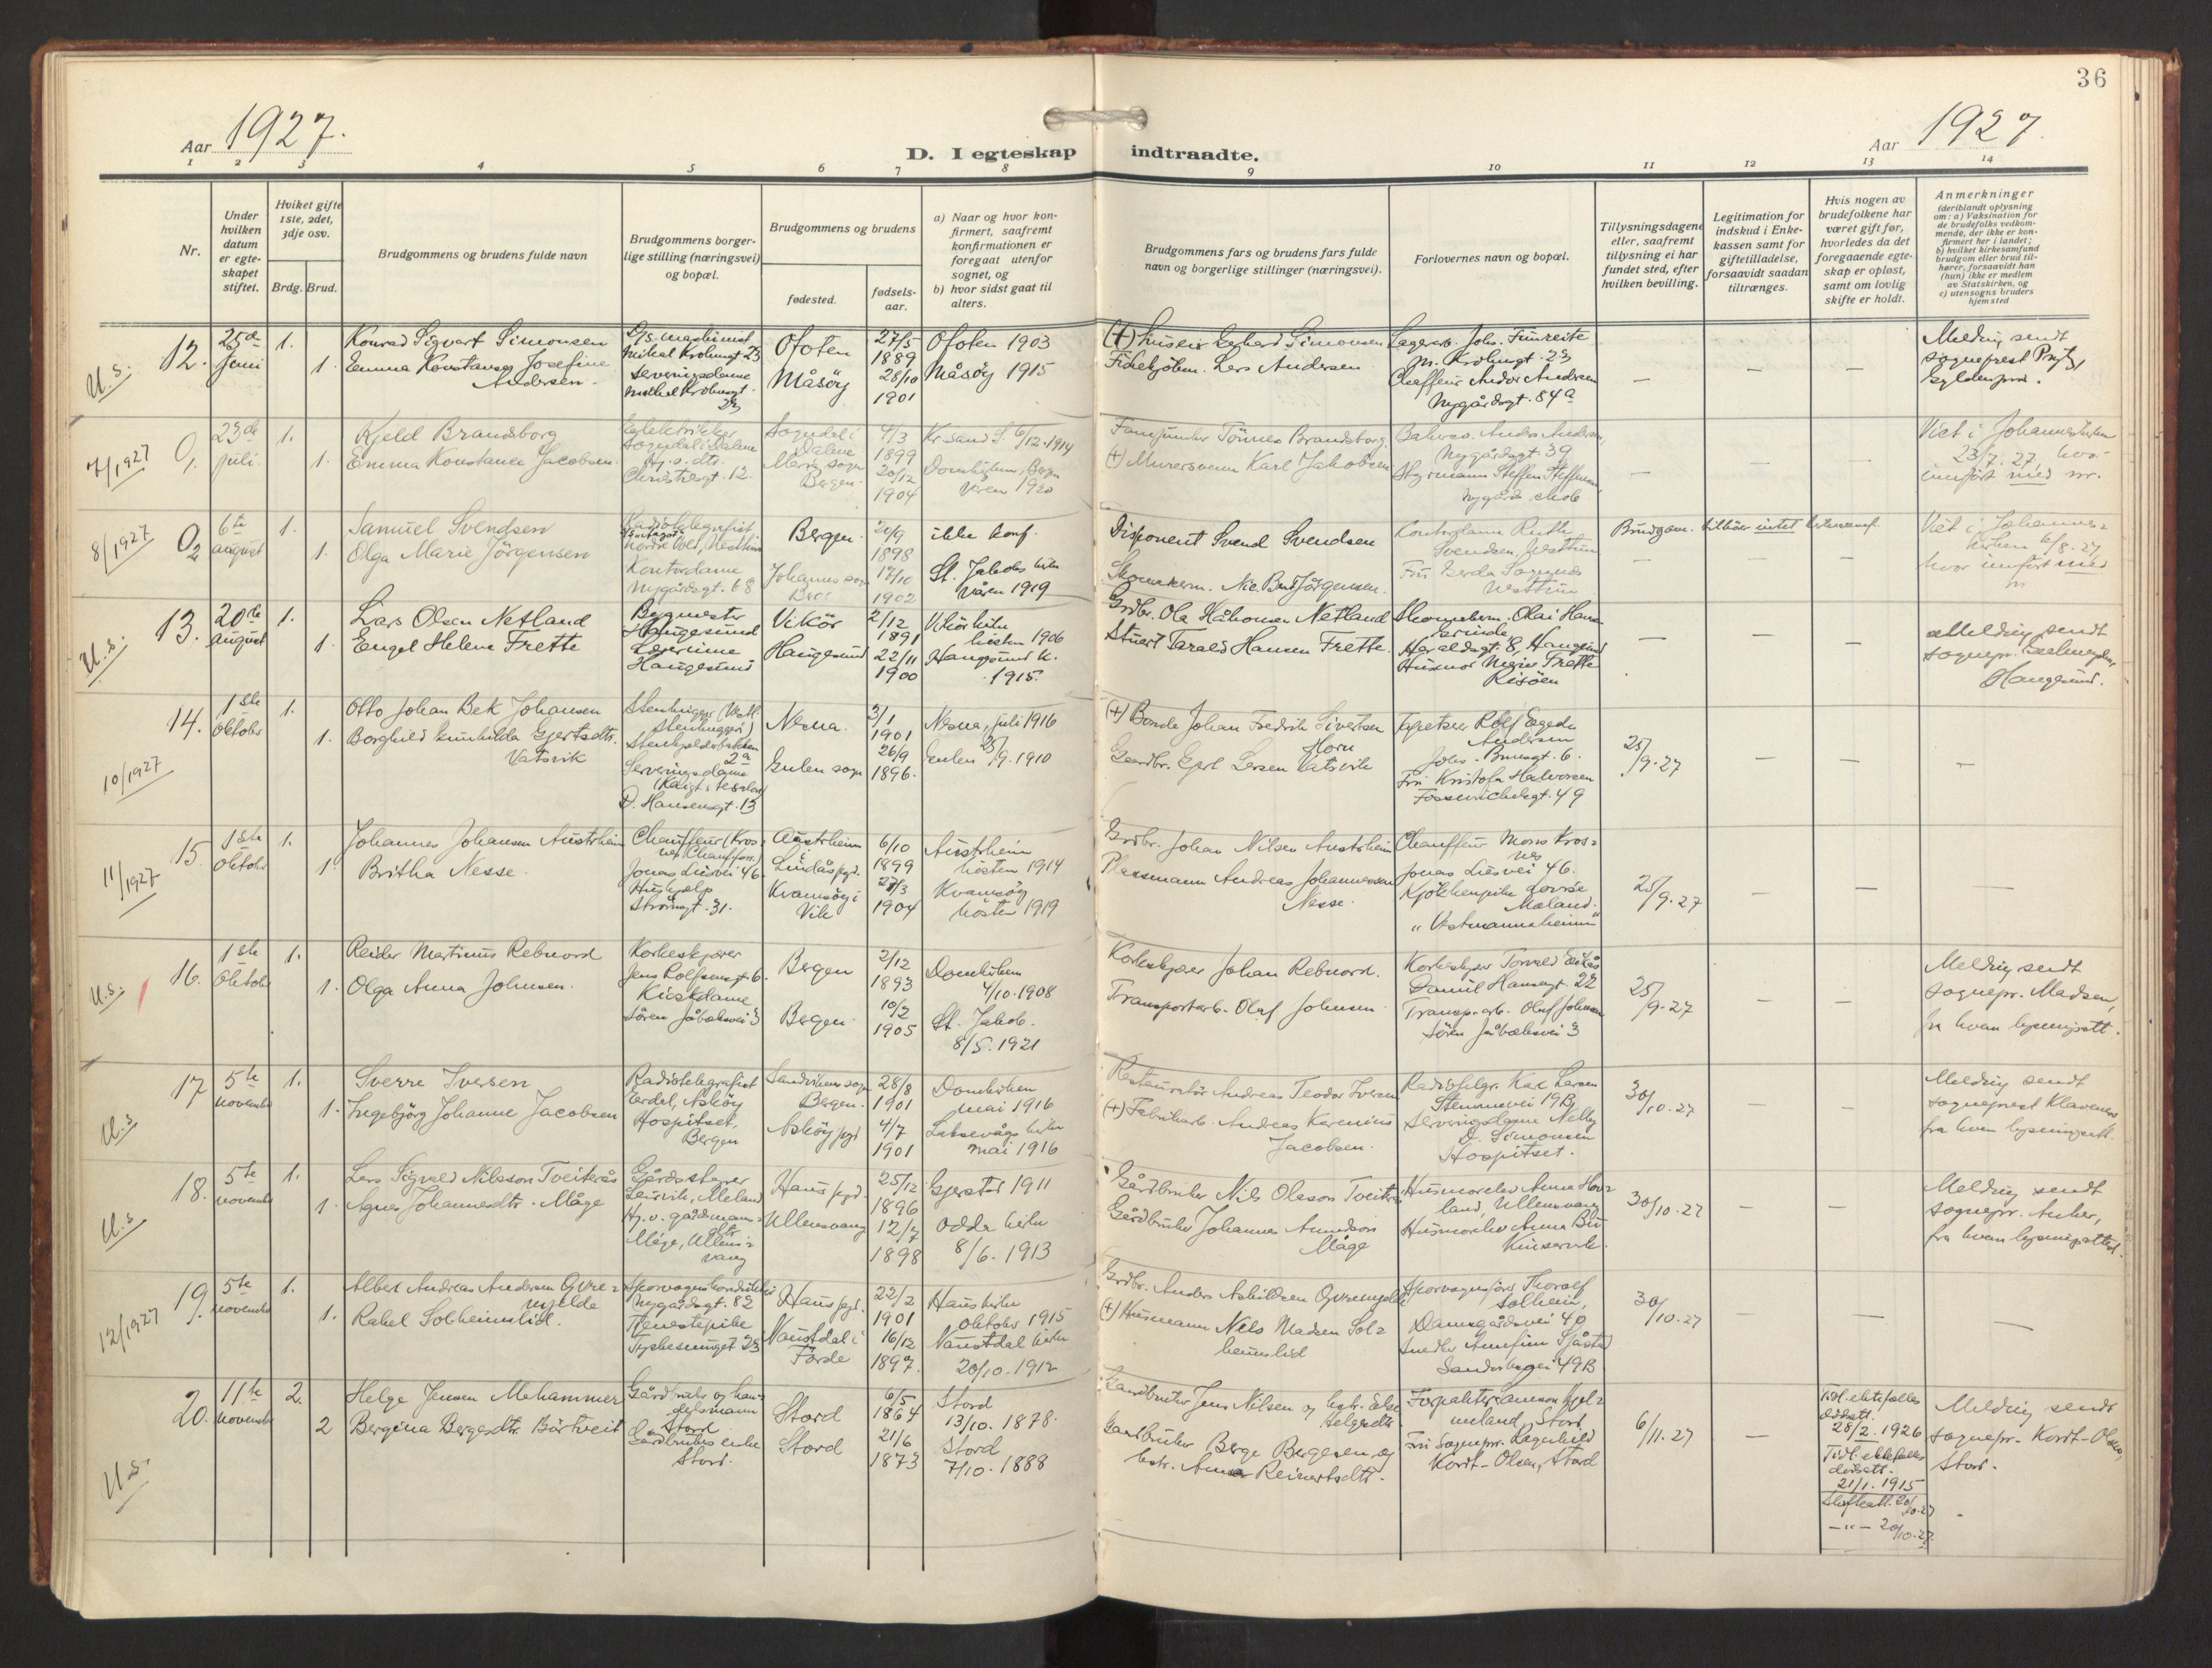 36
Aar 1927.
D. I egteskap indtraadte.
Aar 1927.
1 2 3 4 5 6 7 8 9 10 11 12 13 14
Nr.
Under hvilken datum er egteskapet stiftet.
Hviket gifte 1ste, 2det, 3dje osv.
Brdg. Brud.
Brudgommens og brudens fulde navn
Brudgommens borgerlige stilling (næringsvei) og bopæl.
Brudgommens og brudens
fødested.
fødselsaar.
a) Naar og hvor konfirmert, saafremt konfirmationen er foregaat utenfor sognet, og
b) hvor sidst gaat til alters.
Brudgommens fars og brudens fars fulde navn og borgerlige stillinger (næringsvei).
Forlovernes navn og bopæl.
Tillysningsdagene eller, saafremt tillysning ei har fundet sted, efter hvilken bevilling.
Legitimation for indskud i Enkekassen samt for giftetilladelse, forsaavidt saadan tiltrænges.
Hvis nogen av brudefolkene har været gift før, hvorledes da det foregaaende egteskap er opløst, samt om lovlig skifte er holdt.
Anmerkninger
(deriblandt oplysning om: a) Vaksination for de brudefolks vedkommende, der ikke er konfirmert her i landet; b) hvilket kirkesamfund brudgom eller brud tilhører, forsaavidt han (hun) ikke er medlem av Statskirken, og c) utensogns bruders hjemsted
U.s. 12. 25de juni 1. 1.
Konrad Sigvart Simonsen
Emma Konstanse Josefine Andersen
Mikal Krohnsgt 23
Serveringsdame
Mikal Krohnsgt. 23
Ofoten 27/5 1889 Ofoten 1903
Måsöy 28/10 1901 Måsöy 1915
(+) Huseier Gerhard Simonsen
Fiskekjöbm. Lars Andersen
Lagerarb. Johs. Funreite
M. Krohnsgt. 23
Chaffeur Andor Andersen
Nygårdsgt. 84a
— — —
Melding sendt sogneprest
7/1927 0,1 23de juli 1. 1.
Kjeld Brandsborg
Emma Konstance Jacobsen
Elektriker
Sogndal i Dalene
Hj.v. dtr.
Christiesgt. 12.
Sogndal i Dalene 4/3 1899 Kr.sand S. 6/12. 1914
Maria sogn Bergen 20/12 1904 Domkirken, Bergen våren 1920
Tönnes Brandsborg
(+) Murersvenn Karl Jakobsen
Anders Andersen
Nygårdsgt. 39
Styrmann Steffen Steffensen
Nygårds skole
— — —
Viet i Johanneskirken 23/7. 27, hvor innfört med nr.
8/1927 0,2 6te august 1. 1.
Samuel Svendsen
Olga Marie Jörgensen
Radiotelegrafist
Kontordame
Nygårdsgt. 68
Bergen 20/9 1898 ikke konf.
Johannes sogn 17/10 1902 St. Jakobs kirke våren 1919
Disponent Svend Svendsen
Skomakerm. Nic. Bernt Jörgensen
Kontordame Ruth Svendsen, Nesttun
Fru Gerda
Nesttun
Brudgom. tilhörer intet kirkesamf.
— — —
Viet i Johanneskirken 6/8. 27, hvor innfört med nr
U.s. 13. 20de august 1. 1.
Lars Olsen Netland
Engel Helene Frette
Bygmester
Haugesund
Lærerinne
Haugesund
Vikör 2/12 1891 Vikör kirke hösten 1906
Haugesund 22/11 1900 Haugesund K. 1915.
Grdbr. Ola Håkonsen Netland
Stuert Tarald Hansen Frette.
Skomakerm. Olai Hans
Haraldsgt. 8, Haugesund
Husmor Frette
Risöen
— — —
Melding sendt sognepr.
Haugesund.
10/1927 14. 1ste oktober 1. 1.
Otto Johan Bek Johansen
Borghild Gunhilda Gjertsdtr. Vatsvik
Stenhugger
Serveringsdame
D. Hansensgt. 13
Nesna. 3/1 1901 Nesna, juli 1916
Gulen sogn 26/9 1896. Gulen 25/9. 1910
(+) Bonde Johan Fredrik Sivertsen Horn
Gaardbr. Gjert Larsen Vatsvik
Tapetserer Rolf Egede Andersen
Johs. Brunsgt. 6.
Fru Kristofa Halvorsen
Fosswinckelsgt. 49
25/9. 27 — — —
11/1927 15. 1ste oktober 1. 1.
Johannes Johansen Austrheim
Britha Nesse.
Chauffeur
Jonas Liesvei 46
Hushjelp
Strömgt. 31.
Austrheim i Lindås pgd. 6/10 1899 Austrheim hösten 1914
Kvamsöy i Vik 27/3 1904 Kvamsöy hösten 1919
Grdbr. Johan Nilsen Austrheim
Plassmann Andreas Johannessen Nesse.
Chauffeur Mons Krosnes
Jonas Liesvei 46.
Kjökkenpike Lovise Mæland.
"Vestmannaheimen"
25/9. 27 — — —
U.s. 16. 1ste oktober 1. 1.
Reidar Martinus Rebnord
Olga Anna Johnsen.
Korkeskjærer
Jens Rolfsensgt. 6.
Kioskdame,
Sören Jåbæksvei 3
Bergen 2/12 1893 Domkirken 4/10. 1908
Bergen. 10/2 1905 St. Jakob. 8/5. 1921
Korkeskjærer Johan Rebnord.
Transportarb. Olaf Johnsen
Korkeskjær Torvald
Daniel Hansensgt. 22
Transp. arb. Olaf Johnsen
Sören Jåbæksvei 3
25/9. 27 — —
Melding sendt sognepr. Madsen, fra hvem lysningsatt.
U.s 17 5te november 1. 1.
Sverre Iversen
Ingebjörg Johanne Jacobsen
Radiotelegrafist
Erdal, Askøy
Hospitset, Bergen
Sandvikens sogn Bergen. 28/8 1901 Domkirken mai 1916
Askøy pgd 4/7 1901 Laksevågs kirke mai 1916
Restauratör Andreas Teodor Iversen
(+) Fabrikarb. Andreas Karenius Jacobsen.
Radiotelgr. Kac Larsen
Stemmevei 19B
Serveringsdame Nelly D. Simonsen
Hospitset.
30/10. 27 — —
Melding sendt sogneprest Klaveness fra hvem lysningsatt.
U.s 18. 5te november 1. 1.
Lars Sigvald Nilsson Tveiterås
Agnes Johannesdtr. Måge
Gårdsstyrer
Leirvik, Meland
Hj. v. gårdmannsdtr.
Måge, Ullensvang
Haus pgd. 25/12 1896 Gjerstad 1911
Ullensvang 12/7 1898 Odda kirke 8/6. 1913
Gårdbruker Nils Oleson Tveiterås
Gårdbruker Johannes Amundson Måge
Husmorelev Anna Hovland, Ullensvang
Husmorelev Anna Bu
Kinsarvik.
30/10. 27 — —
Melding sendt sognepr. Anker, fra hvem lysningsattest.
12/1927 19. 5te november 1. 1.
Albert Andreas Andersen Gjvremjelde
Rakel Solheimslid.
Sporvognskonduktör
Nygårdsgt. 82
Tjenestepike
Haus pgd. 22/2 1901 Haus kirke oktober 1915
Naustdal i Förde 16/12 1897. Naustdal kirke 20/10. 1912
Grdbr. Anders Askildsen
(+) Husmann Nils Madsen Solheimslid
Sporvognsförer Thoralf Solheim,
Damsgårdsvei 40
Snedker Arnfinn
49B
30/10. 27 — — —
U.s. 20. 11te november 2. 2
Helge Jensen Mehammer
Bergina Bergesdtr. Börtveit
Gårdbruker og handelsmann
Stord
Gårdbrukers enke
Stord.
Stord 6/5 1864 Stord 13/10. 1878.
Stord 21/6 1873 Stord 7/10. 1888
Gaardbruker Jens Nilsen og hstr. Helgesdtr.
Gaardbruker Berge Bergesen og hstr. Anna Reinertsdtr.
Forpakter
Stord
Fru Sognepr. Lagerheld Kordt-Olsen, Stord
6/11. 27 —
Tidl. ektefælles dödsatt. 28/2. 1926
Tidl. ektefælles dödsatt. 21/1. 1915
Skifteatt. 20/10. 27
— " — 20/10. 27.
Melding sendt sognepr. Kordt-Olsen, Stord.